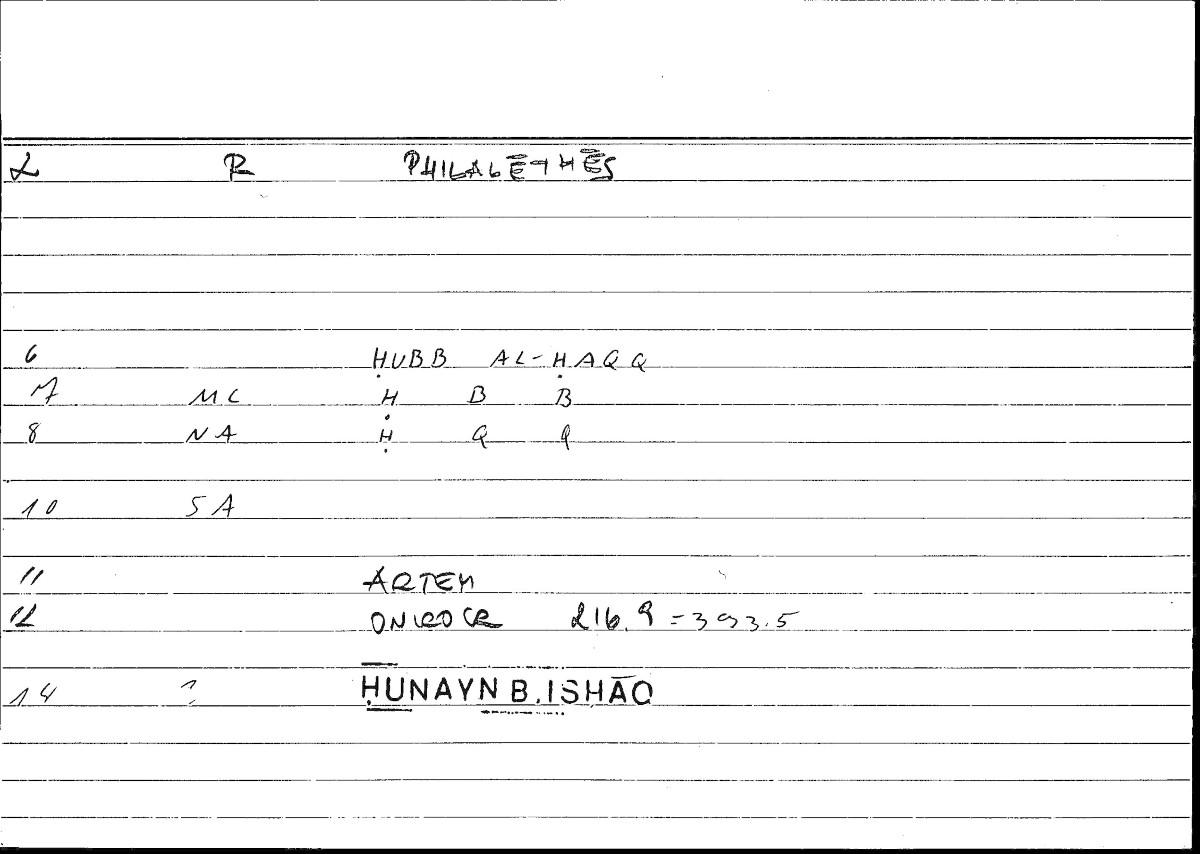 2 R PHILALĒTHĒS
6 ḤUBB AL-ḤAQQ
7 MC Ḥ B B
8 NA Ḥ Q Q
10 SA
11 ARTEM
12 ONIROCR 216.9 = 393.5
14 ? ḤUNAYN B. ISḤĀQ